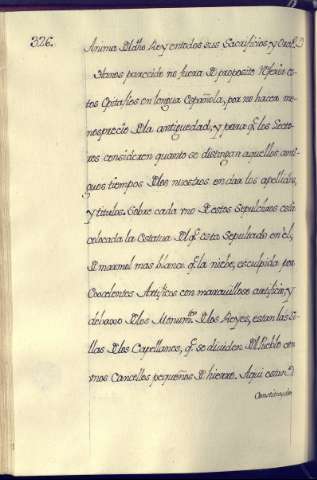 326.
Anima Dl dho Rey en todos sus Sacrificios y Orac.s
Hanos parecido no fuera D proposito referir es-
tos Epitafios en lengua Española, por no hacer me-
nosprecio D la antiguedad, y para q.e los Lecto-
res consideren quanto se distingan aquellos anti-
guos tiempos D los nuestros en dar los apellidos,
y titulos. Sobre cada uno D estos Sepulcros está
colocada la Estatua Dl q.e está Sepultado en el,
D marmol mas blanco q.e la nieve, esculpida por
Excelentes Artifices con maravilloso artificio, y
debaxo D los Monum.tos D los Reyes, estan las Si-
llas D los Capellanes, q.e se dividen Dl Pueblo con
unos Cancelles pequeños D hierro. Aqui estan